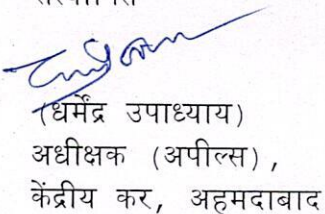 (धर्मेंद्र उपाध्याय)
अधीक्षक (अपील्स),
केंद्रीय कर, अहमदाबाद